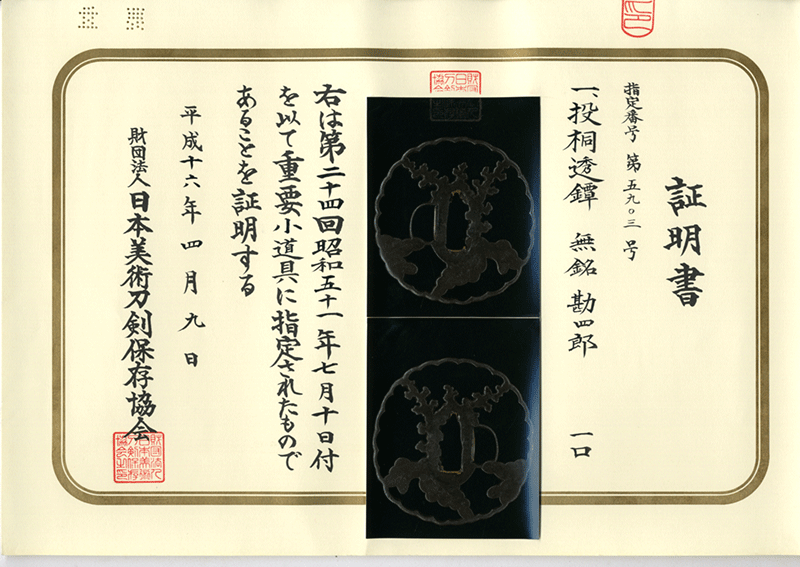 証明書
指定番号 第五九〇三号
一、投桐透鐔 無銘 勘四郎 一口
右は第二十四回昭和五十一年七月十日付
を以て重要小道具に指定されたもので
あることを証明する
平成十六年四月九日
財団法人日本美術刀剣保存協会